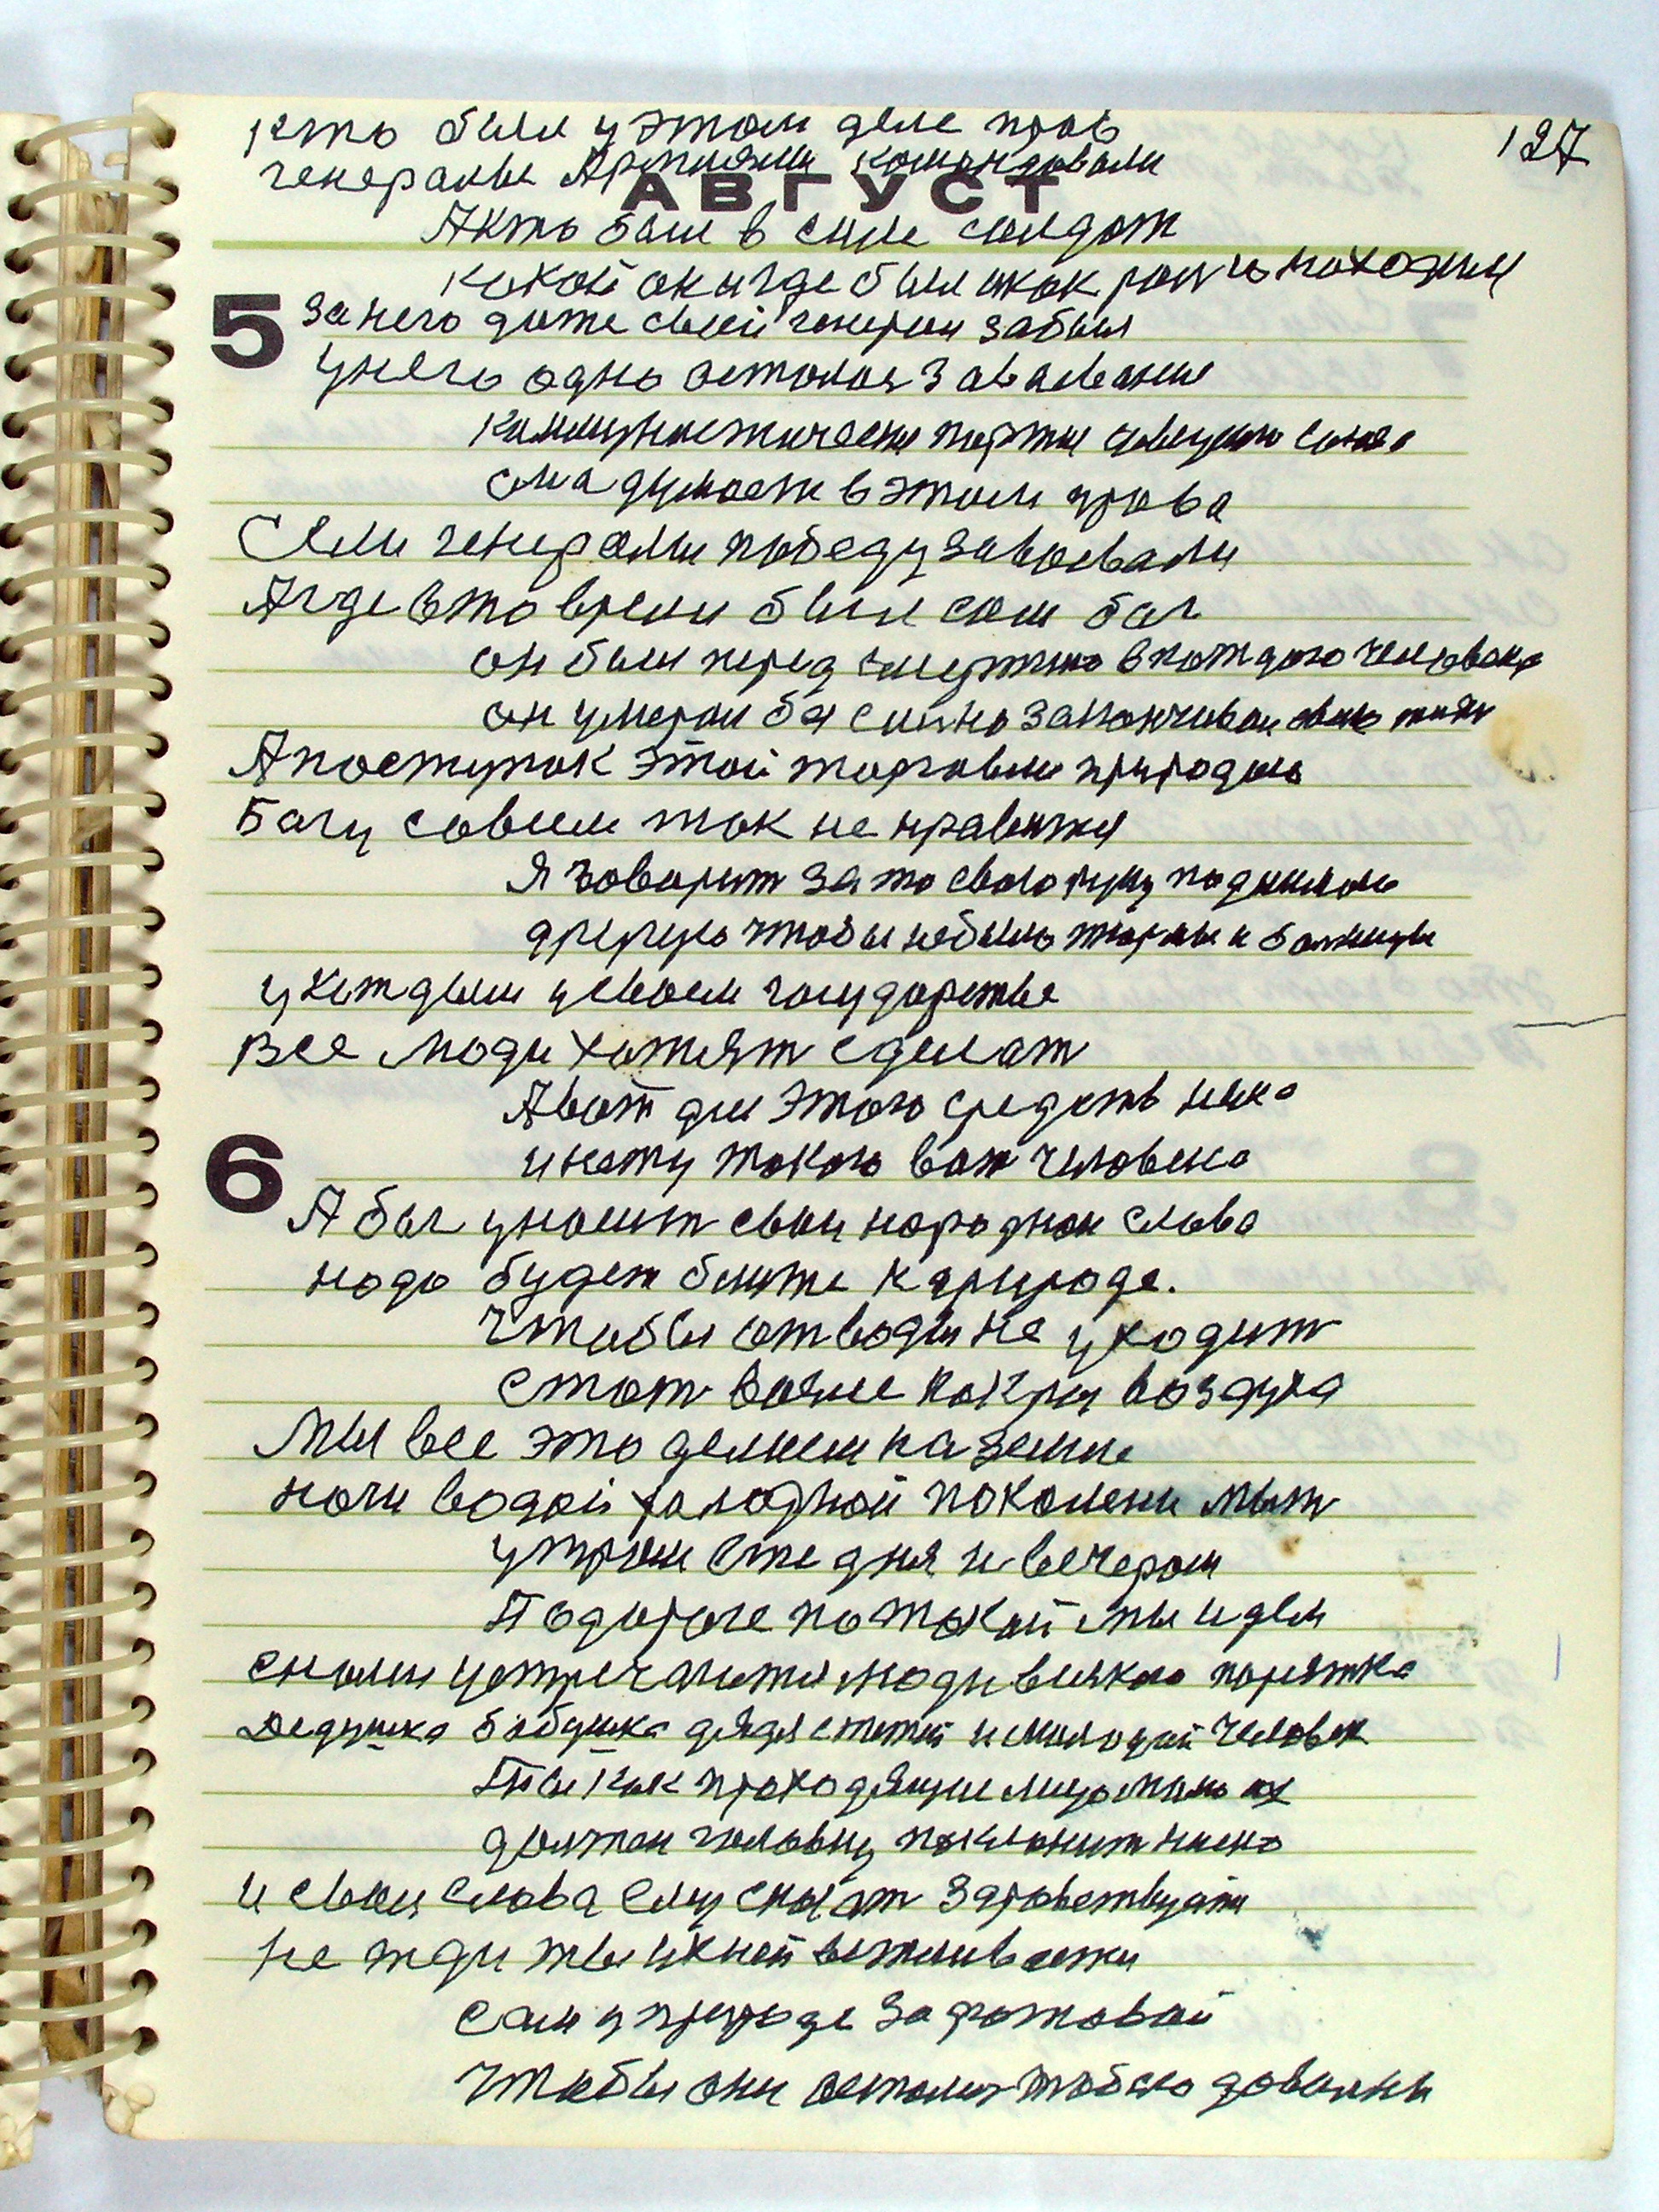 127
кто был у этом деле прав
генералы Армиями командовали
АВГУСТ
А кто был в силе солдат
какой он и где был и как раз находил
5
За него даже свой генерал забыл
У него одно осталося завоевание
коммунистически партии
она думает в этом права
Если генералы победу завоевали
А где в это время был сам бог
он был перед смертью в каждого человека
он умерал бессильно заканчивал свою жизн
А поступок этой торговли природою
Богу совсем так не нравится
Я говорит за то свою руку поднимаю
другую чтобы небыло тюрмы и болницы
у каждым у своем государстве
все люди хотят сделат
А вот для этого средств ника
и нету такого вот человека
6
А бог уносит свои народнои слова
надо будет ближе к природе.
Чтобы от воды не уходит
стат воине накры воздуха
Мы все это делием на земле
ноги водой халодной по колени мыт
утром сте дня и вечером
По дороге по такой мы идем
снами устречаются люди всякого порятка
Дедушка бабушка дядя стетей и молодой человек
Ты как проходящие лицо мимо их
должен голову поклонит ниско
и свои слова ему сказат здравствуйти
не жди ты ихней вежливасти
сам у природе зафотовай
чтобы они остались тобою доволны